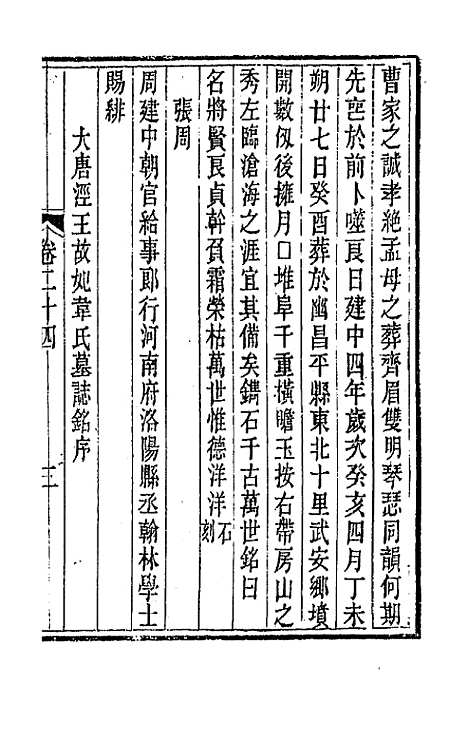 曹家之誠孝絶孟母之葬齊眉雙明琴瑟同韻何期
先亾於前卜噬良日建中四年歲次癸亥四月丁未
朔廿七日癸酉葬於幽昌平縣東北十里武安鄉墳
開數仭後擁月口堆阜千重橫瞻玉按右帶房山之
秀左臨滄海之涯宜其備矣鐫石千古萬世銘曰
名將賢良貞幹負霜榮枯萬世惟德洋洋石刻
張周
周建中朝官給事郎行河南府洛陽縣丞翰林學士
賜緋
大唐涇王故妃韋氏墓誌銘序
卷二十四
三